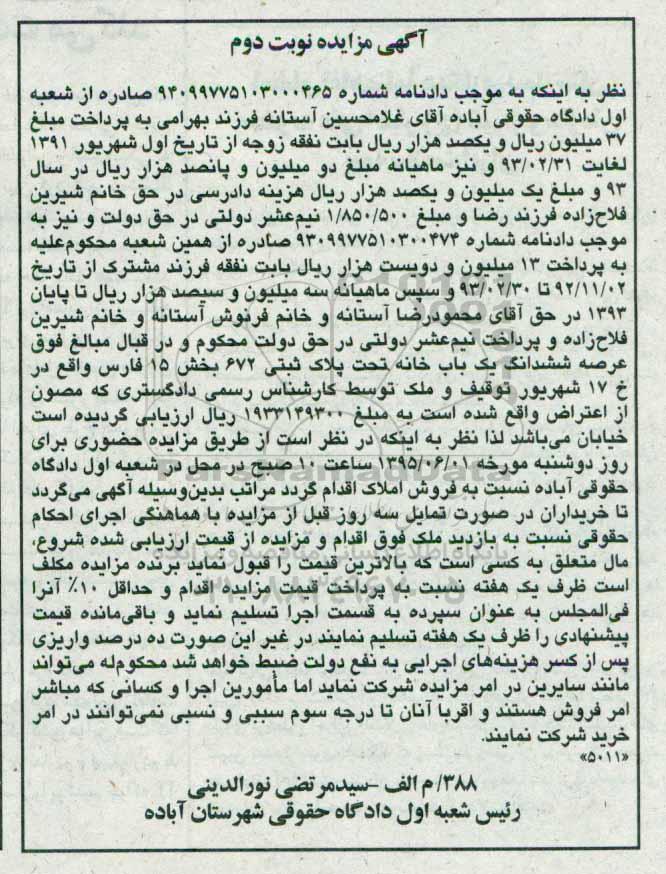 آگهی مزایده نوبت دوم
نظر به اینکه به موجب دادنامه شماره ۹۴۰۹۹۷۷۵۱۰۳۰۰۰۴۶۵ صادره از شعبه
اول دادگاه حقوقی آباده آقای غلامحسین آستانه فرزند بهرامی به پرداخت مبلغ
۳۷ میلیون ریال و یکصد هزار ریال بابت نفقه زوجه از تاریخ اول شهریور ۱۳۹۱
لغایت ۹۳/۰۲/۳۱ و نیز ماهیانه مبلغ دو میلیون و پانصد هزار ریال در سال
۹۳ و مبلغ یک میلیون و یکصد هزار ریال هزینه دادرسی در حق خانم شیرین
فلاح‌زاده فرزند رضا و مبلغ ۱/۸۵۰/۵۰۰ نیم‌عشر دولتی در حق دولت و نیز به
موجب دادنامه شماره ۹۳۰۹۹۷۷۵۱۰۳۰۰۴۷۴ صادره از همین شعبه محکوم‌علیه
به پرداخت ۱۳ میلیون و دویست هزار ریال بابت نفقه فرزند مشترک از تاریخ
۹۲/۱۱/۰۲ تا ۹۳/۰۲/۳۰ و سپس ماهیانه سه میلیون و سیصد هزار ریال تا پایان
۱۳۹۳ در حق آقای محمودرضا آستانه و خانم فرنوش آستانه و خانم شیرین
فلاح‌زاده و پرداخت نیم‌عشر دولتی در حق دولت محکوم و در قبال مبالغ فوق
عرصه ششدانگ یک باب خانه تحت پلاک ثبتی ۶۷۲ بخش ۱۵ فارس واقع در
خ ۱۷ شهریور توقیف و ملک توسط کارشناس رسمی دادگستری که مصون
از اعتراض واقع شده است به مبلغ ۱۹۳۳۱۴۹۳۰۰ ریال ارزیابی گردیده است
خیابان می‌باشد لذا نظر به اینکه در نظر است از طریق مزایده حضوری برای
روز دوشنبه مورخه ۱۳۹۵/۰۶/۰۱ ساعت ۱۰ صبح در محل در شعبه اول دادگاه
حقوقی آباده نسبت به فروش املاک اقدام گردد مراتب بدین‌وسیله آگهی می‌گردد
تا خریداران در صورت تمایل سه روز قبل از مزایده با هماهنگی اجرای احکام
حقوقی نسبت به بازدید ملک فوق اقدام و مزایده از قیمت ارزیابی شده شروع،
مال متعلق به کسی است که بالاترین قیمت را قبول نماید برنده مزایده مکلف
است ظرف یک هفته نسبت به پرداخت قیمت مزایده اقدام و حداقل ۱۰٪ آنرا
فی‌المجلس به عنوان سپرده به قسمت اجرا تسلیم نماید و باقی‌مانده قیمت
پیشنهادی را ظرف یک هفته تسلیم نمایند در غیر این صورت ده درصد واریزی
پس از کسر هزینه‌های اجرایی به نفع دولت ضبط خواهد شد محکوم‌له می‌تواند
مانند سایرین در امر مزایده شرکت نماید اما مأمورین اجرا و کسانی که مباشر
امر فروش هستند و اقربا آنان تا درجه سوم سببی و نسبی نمی‌توانند در امر
خرید شرکت نمایند.
«۵۰۱۱»
۳۸۸/م الف -سیدمرتضی نورالدینی
رئیس شعبه اول دادگاه حقوقی شهرستان آباده